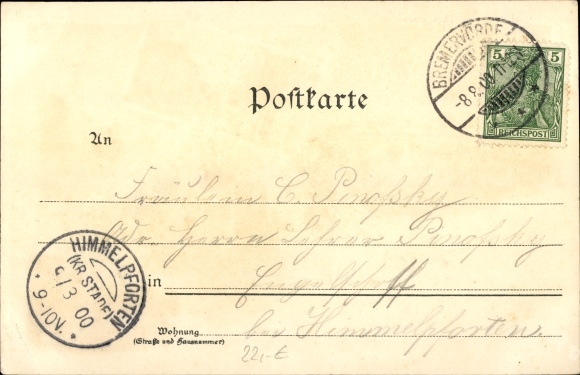 Postkarte
BREMERVÖRDE
-8.3.00.11-12
5 5
REICHSPOST
An
Fräulein C. Pinofsky
Adr. Herrn Lehrer Pinofsky
in Engelschoff
bei Himmelpforten
HIMMELPFORTEN
(KR. STADE)
9/3 00
9-10V.
Wohnung
(Straße und Hausnummer)
22,-€